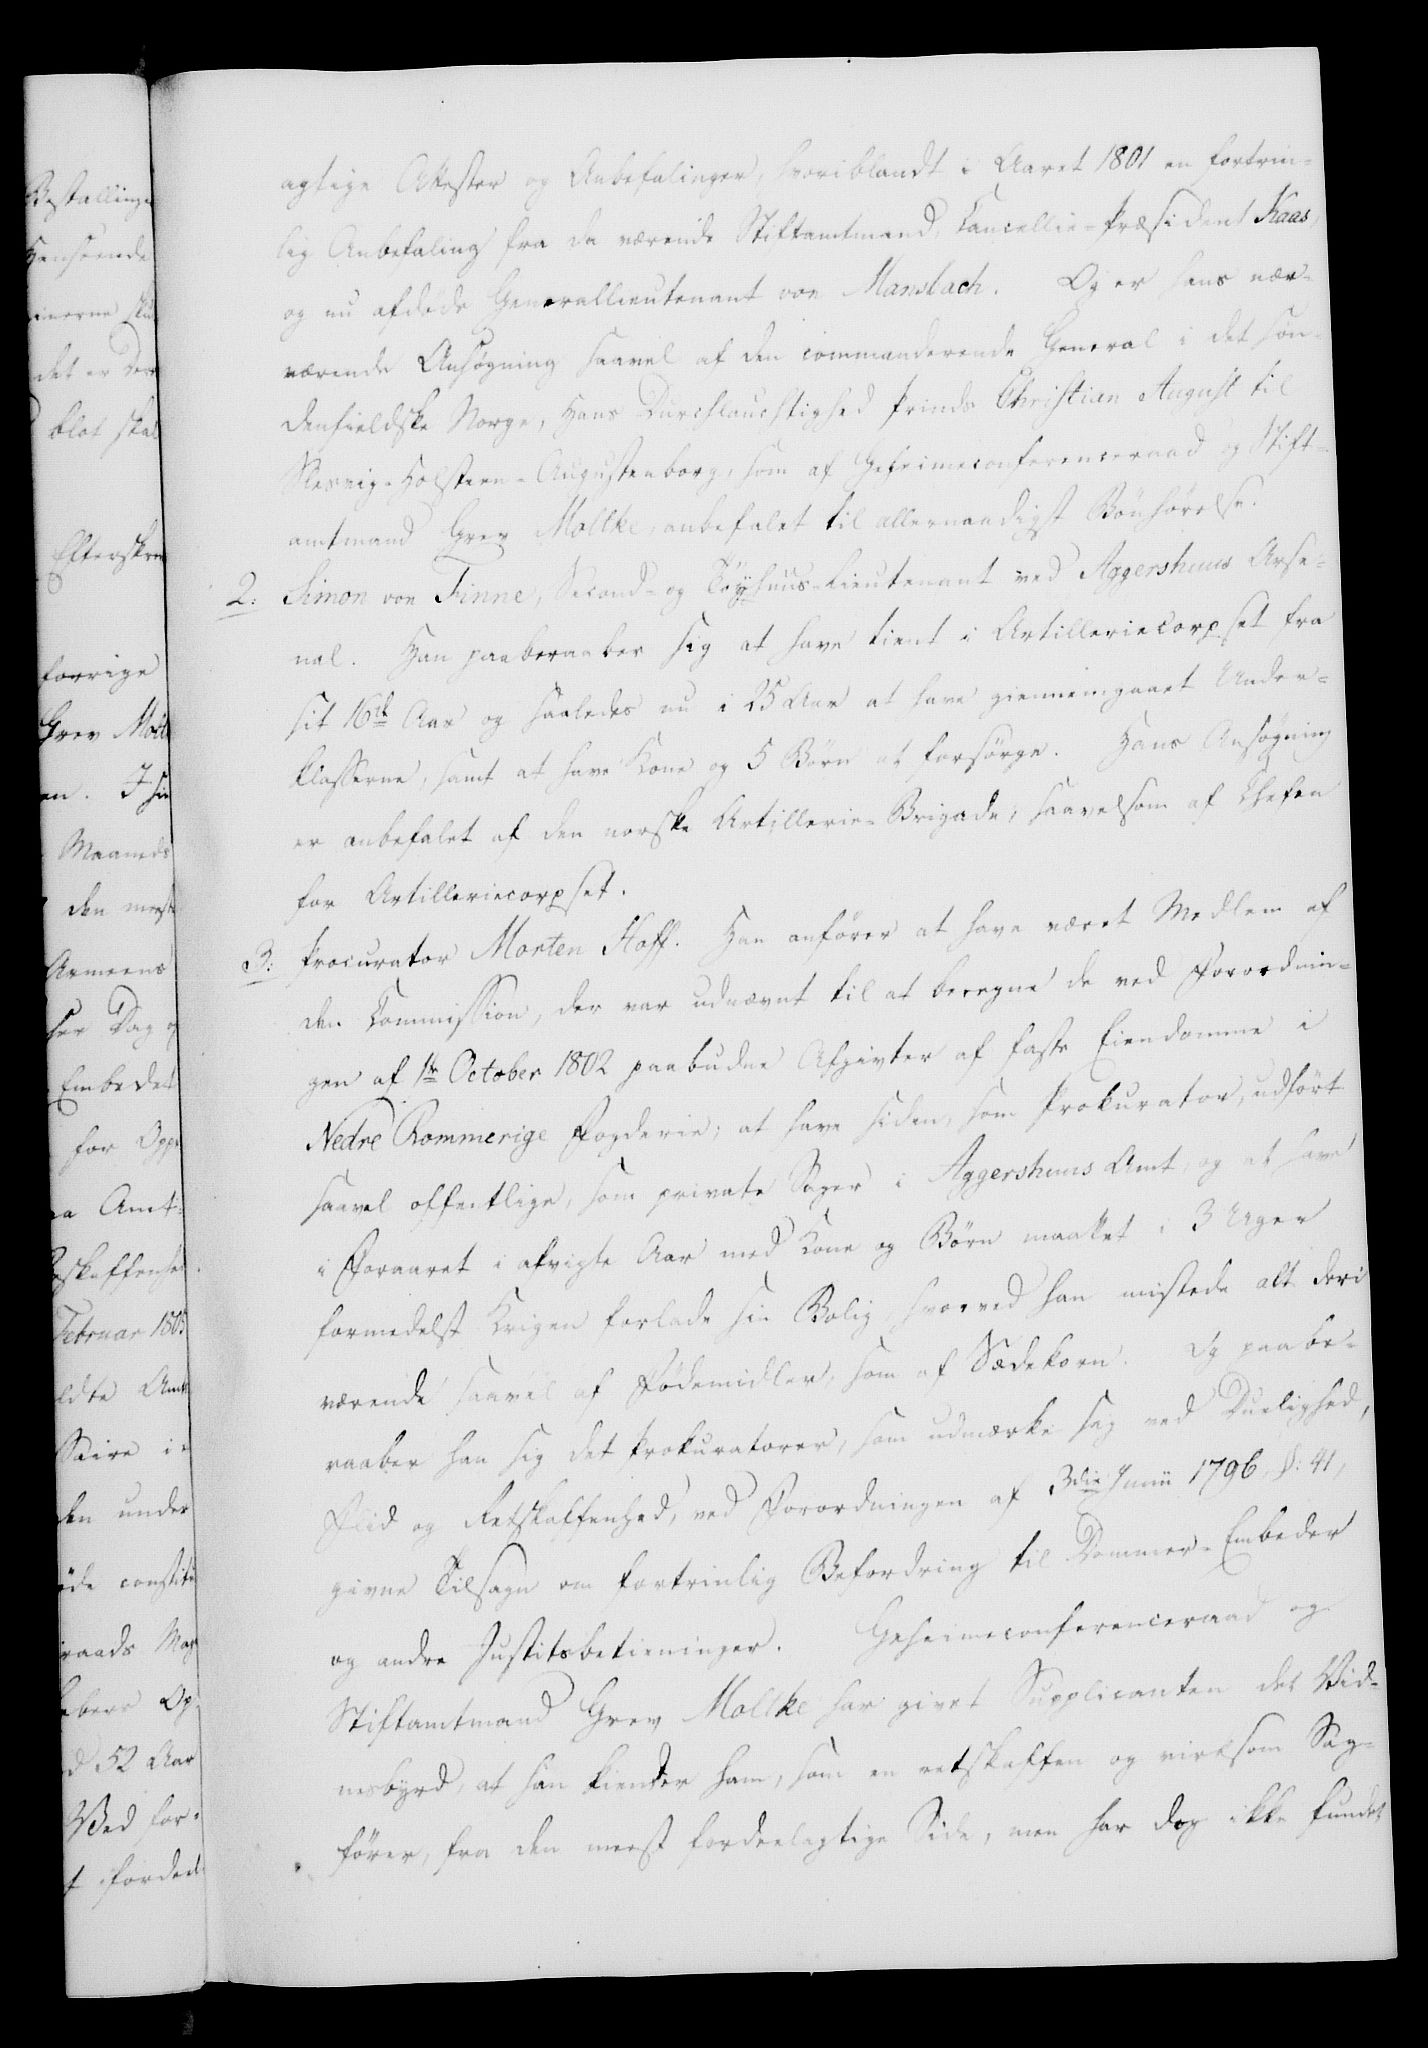 agtige Attester og Anbefalinger, hvoriblandt i Aaret 1801 en fortrin-
lig Anbefaling fra da værende Stiftamtmand, Cancellie-Præsident Kaas,
og nu afdøde Generallieutenant von Mansbach. Og er hans nær-
værende Ansøgning saavel af den commanderende General i det søn-
denfieldske Norge, Hans Durchlauchtighed Prinds Christian August til
Slesvig-Holsteen-Augustenborg, som af Geheimeconferenceraad og Stift-
amtmand Grev Moltke, anbefalet til allernaadigst Bønhørelse.
2: Simon von Finne, Second- og Töyhuus-Lieutenant ved Aggershuus Arse-
nal. Han paaberaaber sig at have tient i Artilleriecorpset fra
sit 16de Aar og saaledes nu i 25 Aar at have giennemgaaet Under-
klasserne, samt at have Kone og 5 Børn at forsørge. Hans Ansøgning
er anbefalet af den norske Artillerie-Brigade, saavelsom af Chefen
for Artilleriecorpset.
3: Procurator Morten Hoff. Han anfører at have været Medlem af
den Commission, der var udnævnt til at beregne de ved Forordnin-
gen af 1te October 1802 paabudne Afgivter af faste Eiendomme i
Nedre Rommerige Fogderie; at have siden, som Prokurator, udført
saavel offentlige, som private Sager i Aggershuus Amt, og at have
i Foraaret i afvigte Aar med Kone og Børn maattet i 3 Uger
formedelst Krigen forlade sin Bolig, hvorved han mistede alt deri
værende saavel af Fødemidler, som af Sædekorn. Og paabe-
raaber han sig det Prokuratorer, som udmærke sig ved Duelighed,
Flid og Retskaffenhed, ved Forordningen af 3die Junii 1796, §: 41,
givne Tilsagn om fortrinlig Befordring til Dommer-Embeder
og andre Justitsbetieninger. Geheimeconferenceraad og
Stiftamtmand Grev Moltke har givet Supplicanten det Vid-
nesbyrd, at han kiender ham, som en retskaffen og virksom Sag-
fører, fra den meest fordeelagtige Side, men har dog ikke fundet